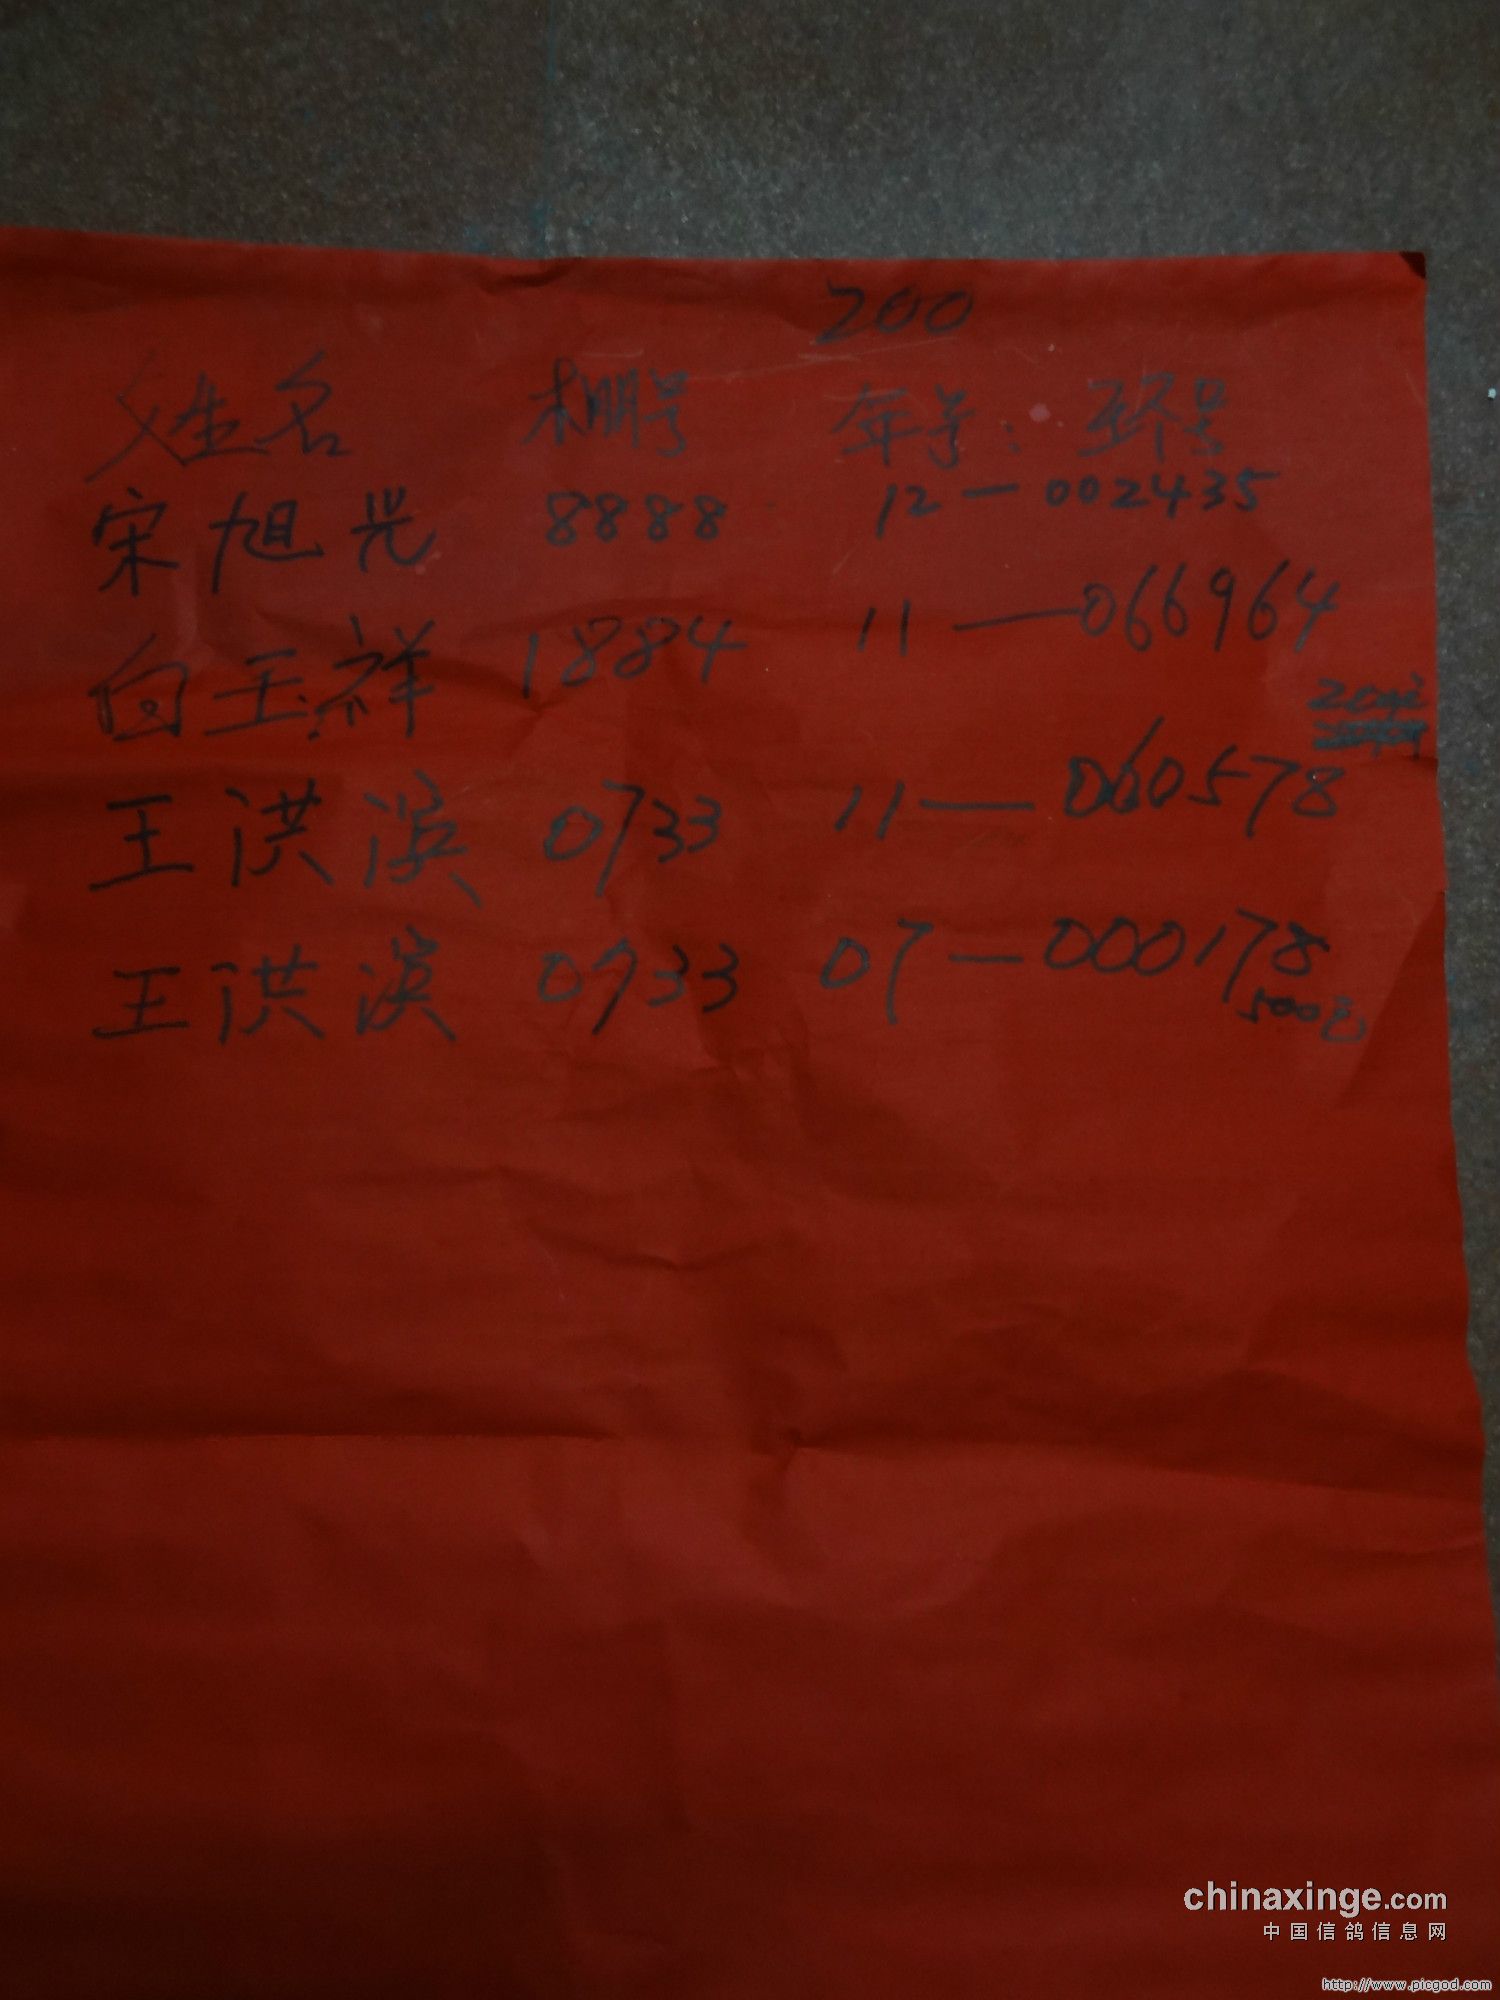 200
姓名 棚号 年号: 环号
宋旭光 8888 12—002435
向玉祥 1884 11—066964
200元
王洪滨 0733 11—060578
王洪滨 0733 07—000178
500元
chinaxinge.com
中国信鸽信息网
http://www.picgod.com